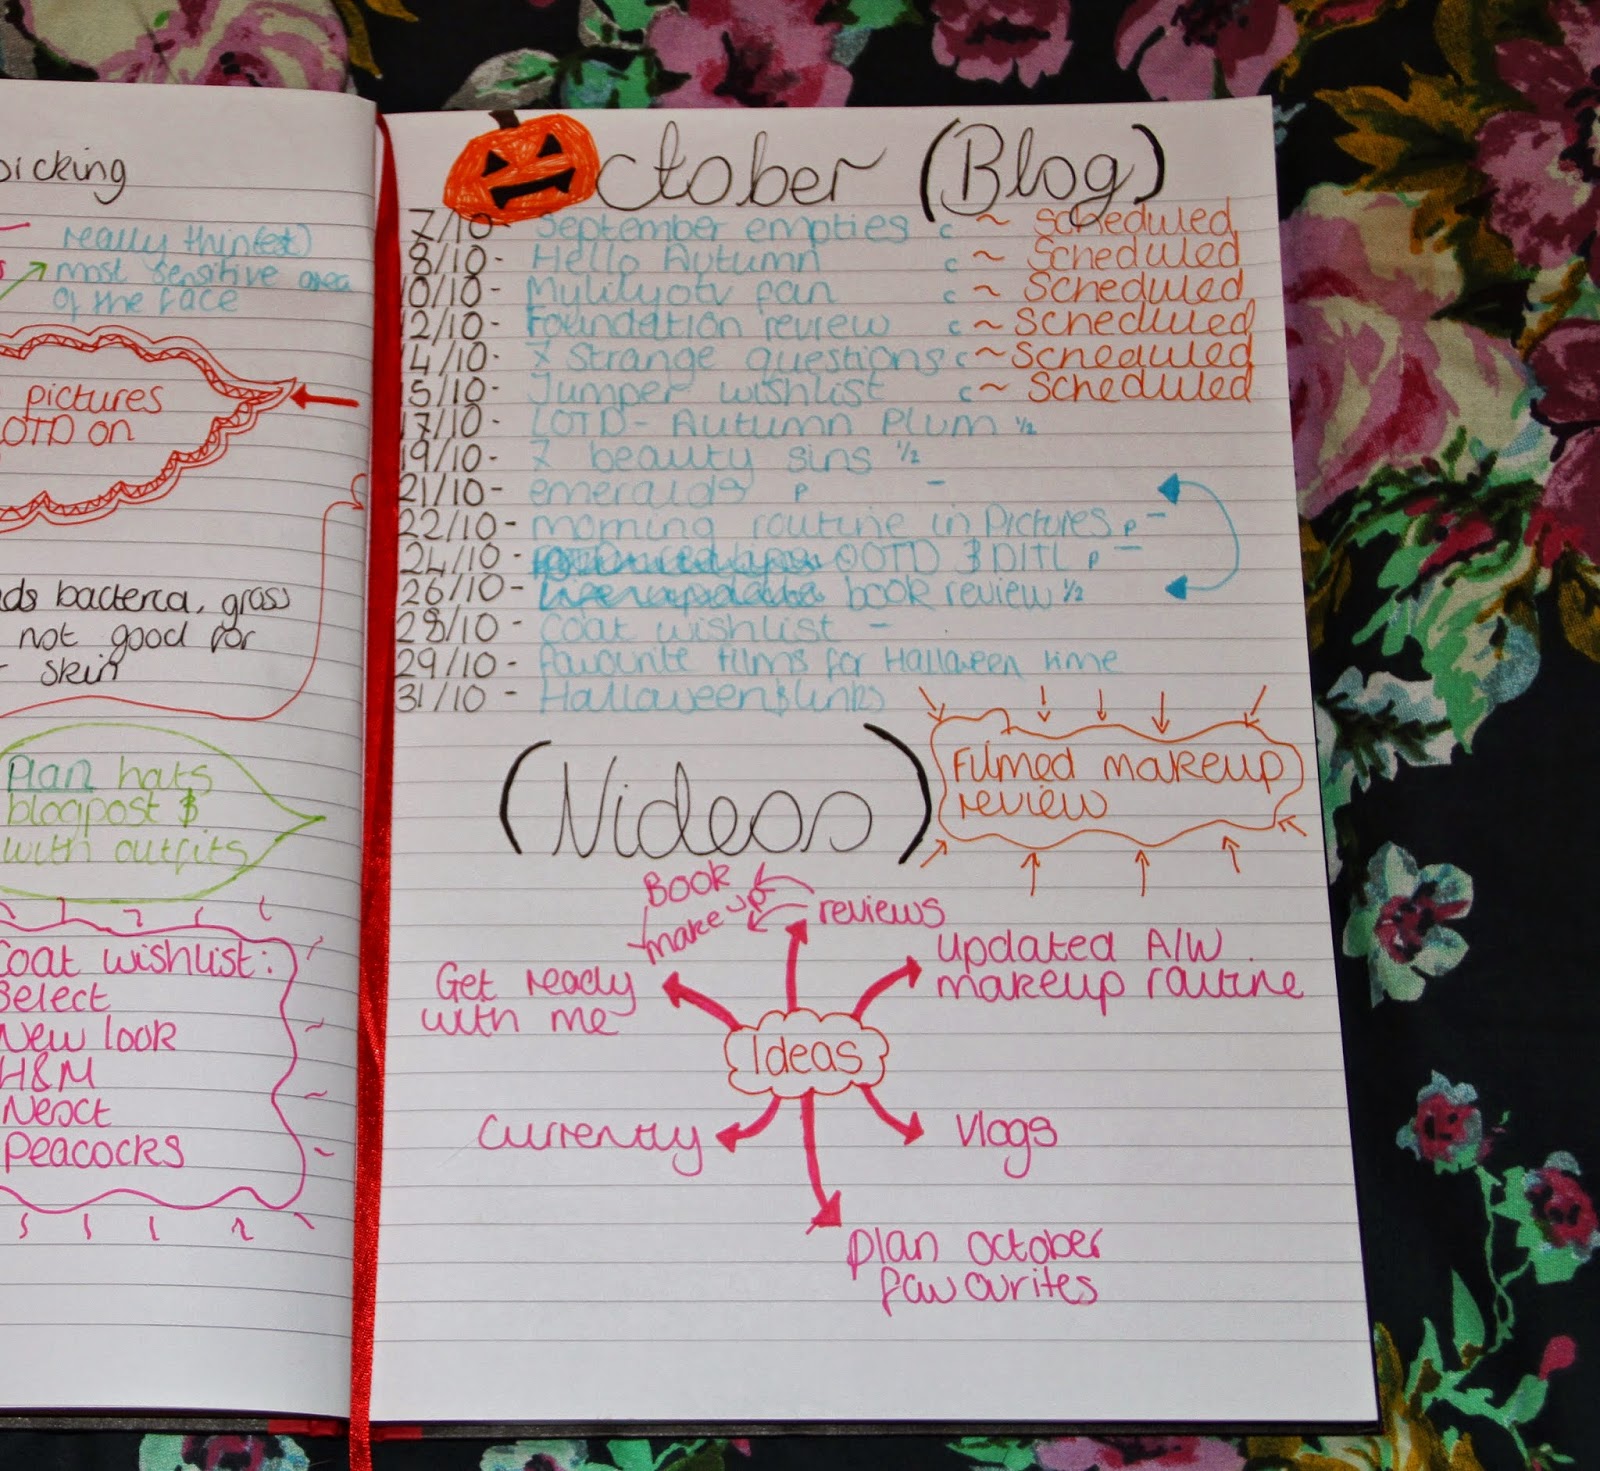 picking
really thin(est)
most sensitive area
of the face
pictures
LOTD on
bacteria, gross
not good for
skin
Plan hats
blogpost &
with outfits
Coat wishlist:
Select
New look
H&M
Next
Peacocks
ctober (Blog)
7/10 - September empties c ~ Scheduled
8/10 - Hello Autumn c ~ Scheduled
10/10 - Mylilyotv fan c ~ Scheduled
12/10 - Foundation review c ~ Scheduled
14/10 - 7 Strange questions c ~ Scheduled
15/10 - Jumper wishlist c ~ Scheduled
17/10 - LOTD - Autumn Plum 1/2
19/10 - 7 beauty sins 1/2
21/10 - emeralds p -
22/10 - morning routine in Pictures p -
24/10 - OOTD & DITL p -
26/10 - book review 1/2
28/10 - Coat wishlist -
29/10 - favourite films for Halloween time
31/10 - Halloween & links
(Videos)
Filmed makeup
review
Book
makeup
reviews
updated A/W
makeup routine
Get ready
with me
Ideas
Currently
Vlogs
plan october
favourites